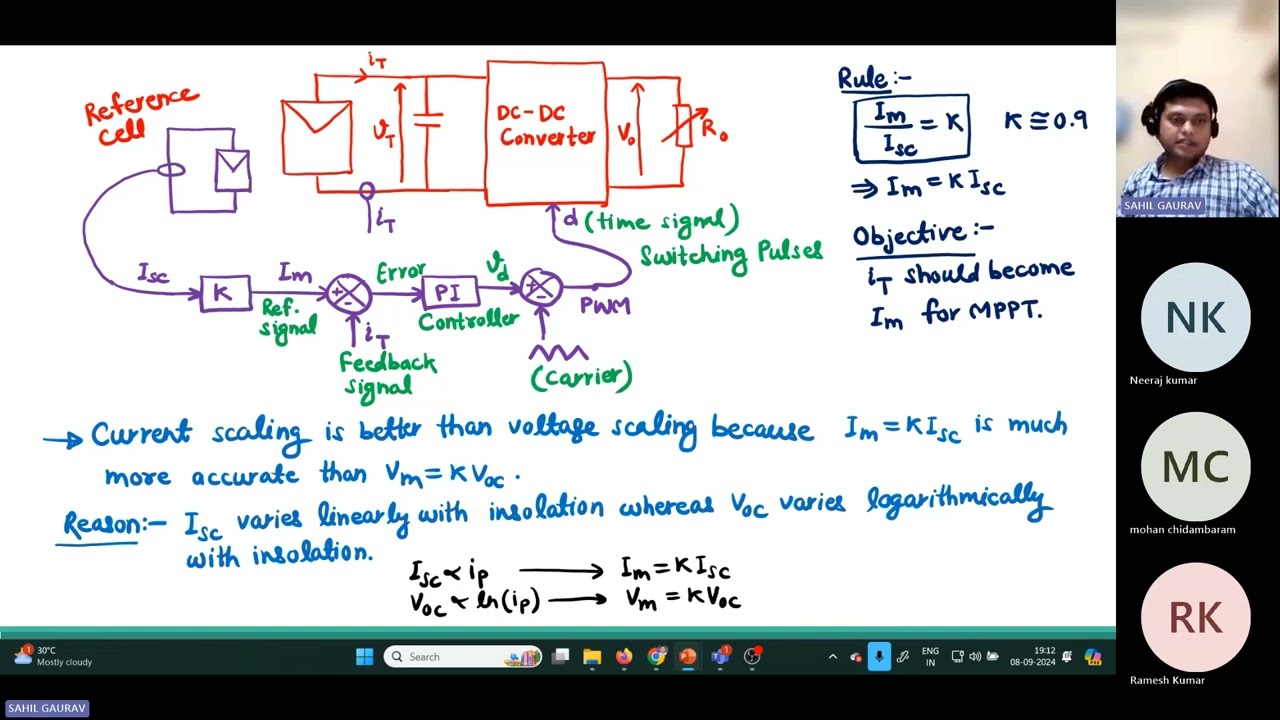 Reference
cell
i_T
v_T
DC-DC
Converter
V_o
R_o
i_T
d (time signal)
Switching Pulses
I_sc
K
I_m
Ref.
signal
+
-
Error
PI
Controller
v_d
+
-
PWM
i_T
Feedback
signal
(Carrier)
Rule:-
I_m / I_sc = K
K ≅ 0.9
⇒ I_m = K I_sc
Objective:-
i_T should become
I_m for MPPT.
→ Current scaling is better than voltage scaling because I_m = K I_sc is much
more accurate than V_m = K V_oc.
Reason:- I_sc varies linearly with insolation whereas V_oc varies logarithmically
with insolation.
I_sc ∝ i_p → I_m = K I_sc
V_oc ∝ ln(i_p) → V_m = K V_oc
SAHIL GAURAV
NK
Neeraj kumar
MC
mohan chidambaram
RK
Ramesh Kumar
1
30°C
Mostly cloudy
Search
ENG
IN
19:12
08-09-2024
SAHIL GAURAV